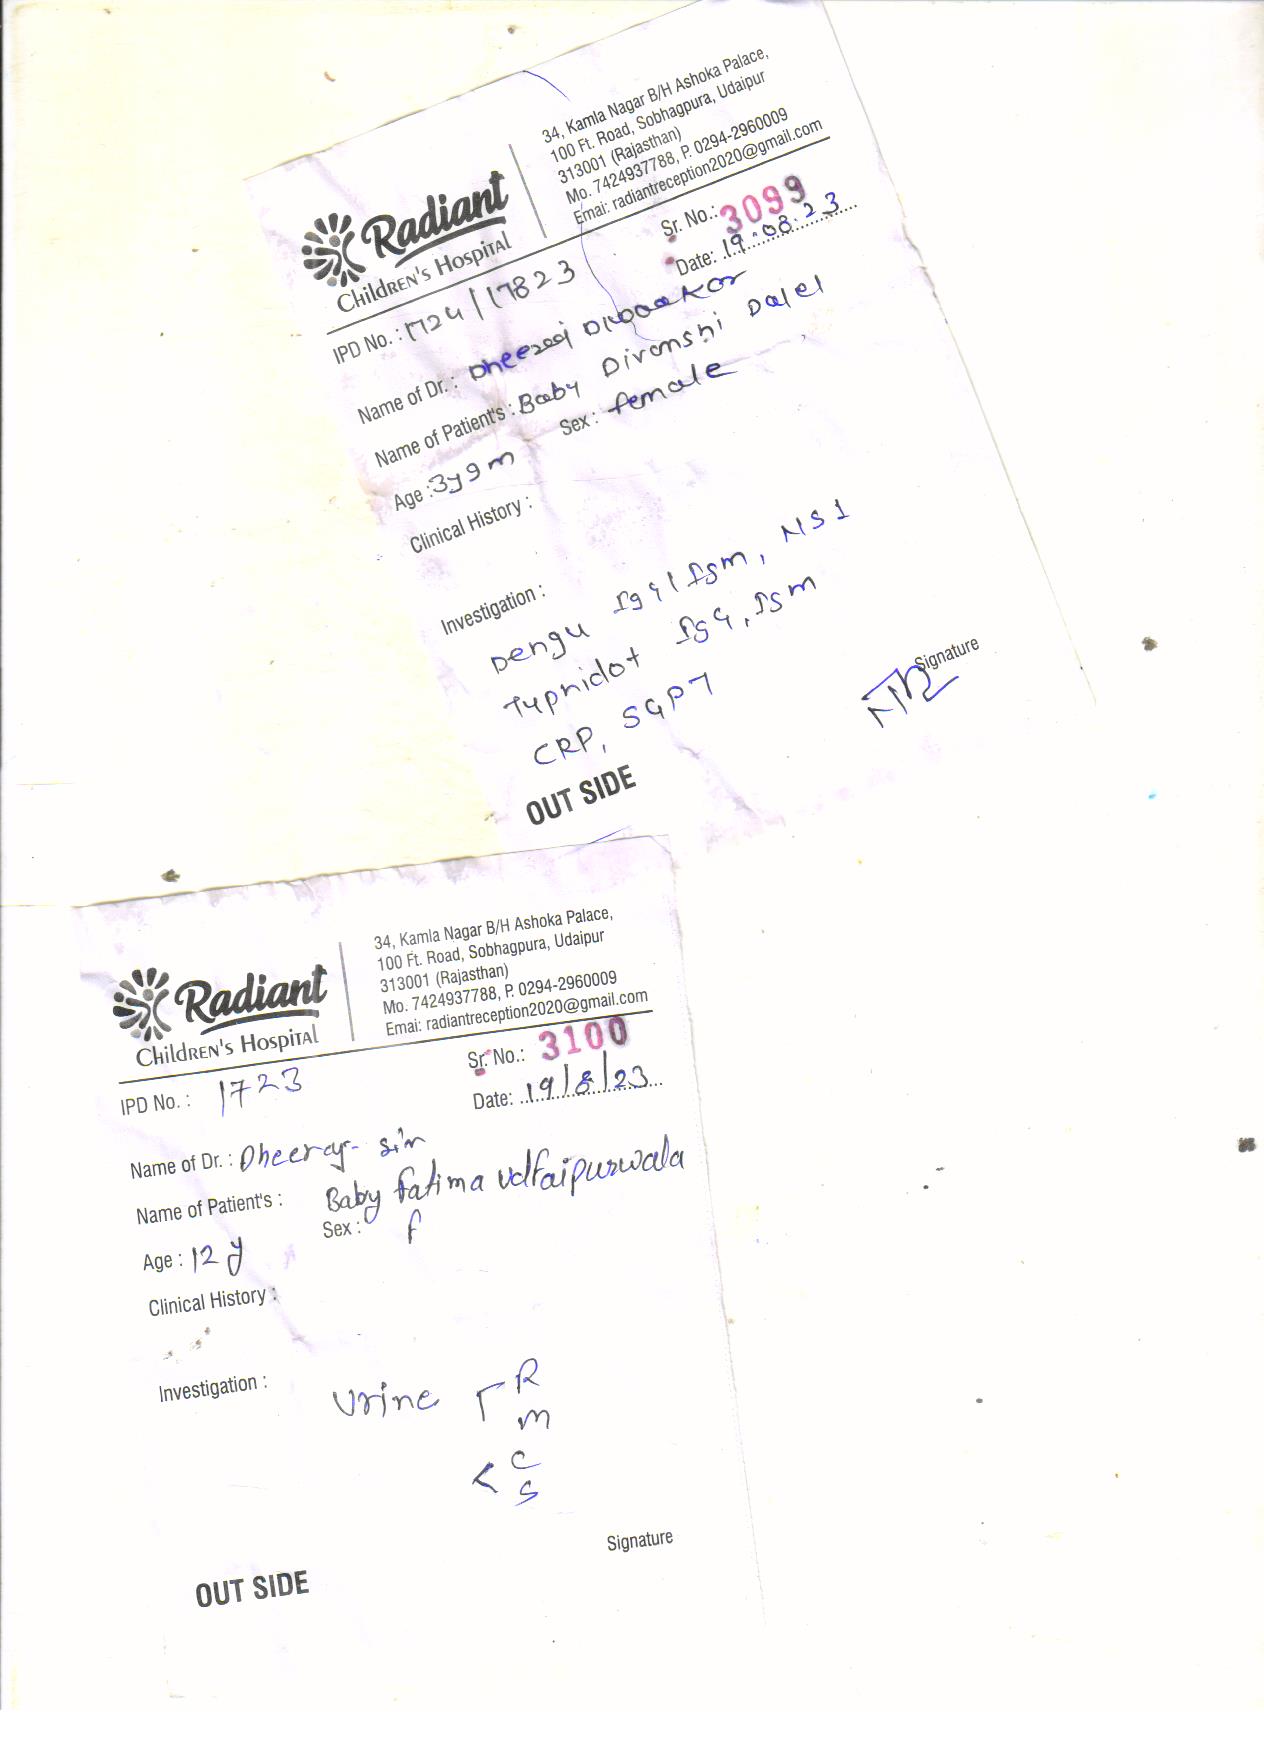 Radiant
Children's Hospital
34, Kamla Nagar B/H Ashoka Palace,
100 Ft. Road, Sobhagpura, Udaipur
313001 (Rajasthan)
Mo. 7424937788, P. 0294-2960009
Emai: radiantreception2020@gmail.com
Sr. No.: 3099
IPD No. : 1724/17823
Date: 19.08.23
Name of Dr. : Dheeraj
Name of Patient's : Baby Divanshi Dalel
Age : 3y 9m Sex : female
Clinical History :
Investigation :
Dengu IgG/IgM, NS1
Typhidot IgG, IgM
CRP, SGPT
Signature
OUT SIDE
Radiant
Children's Hospital
34, Kamla Nagar B/H Ashoka Palace,
100 Ft. Road, Sobhagpura, Udaipur
313001 (Rajasthan)
Mo. 7424937788, P. 0294-2960009
Emai: radiantreception2020@gmail.com
Sr. No.: 3100
IPD No. : 1723
Date: 19/8/23
Name of Dr. : Dheeraj sir
Name of Patient's : Baby Fatima
Age : 12 y Sex : f
Clinical History :
Investigation :
Urine R
m
C
S
Signature
OUT SIDE